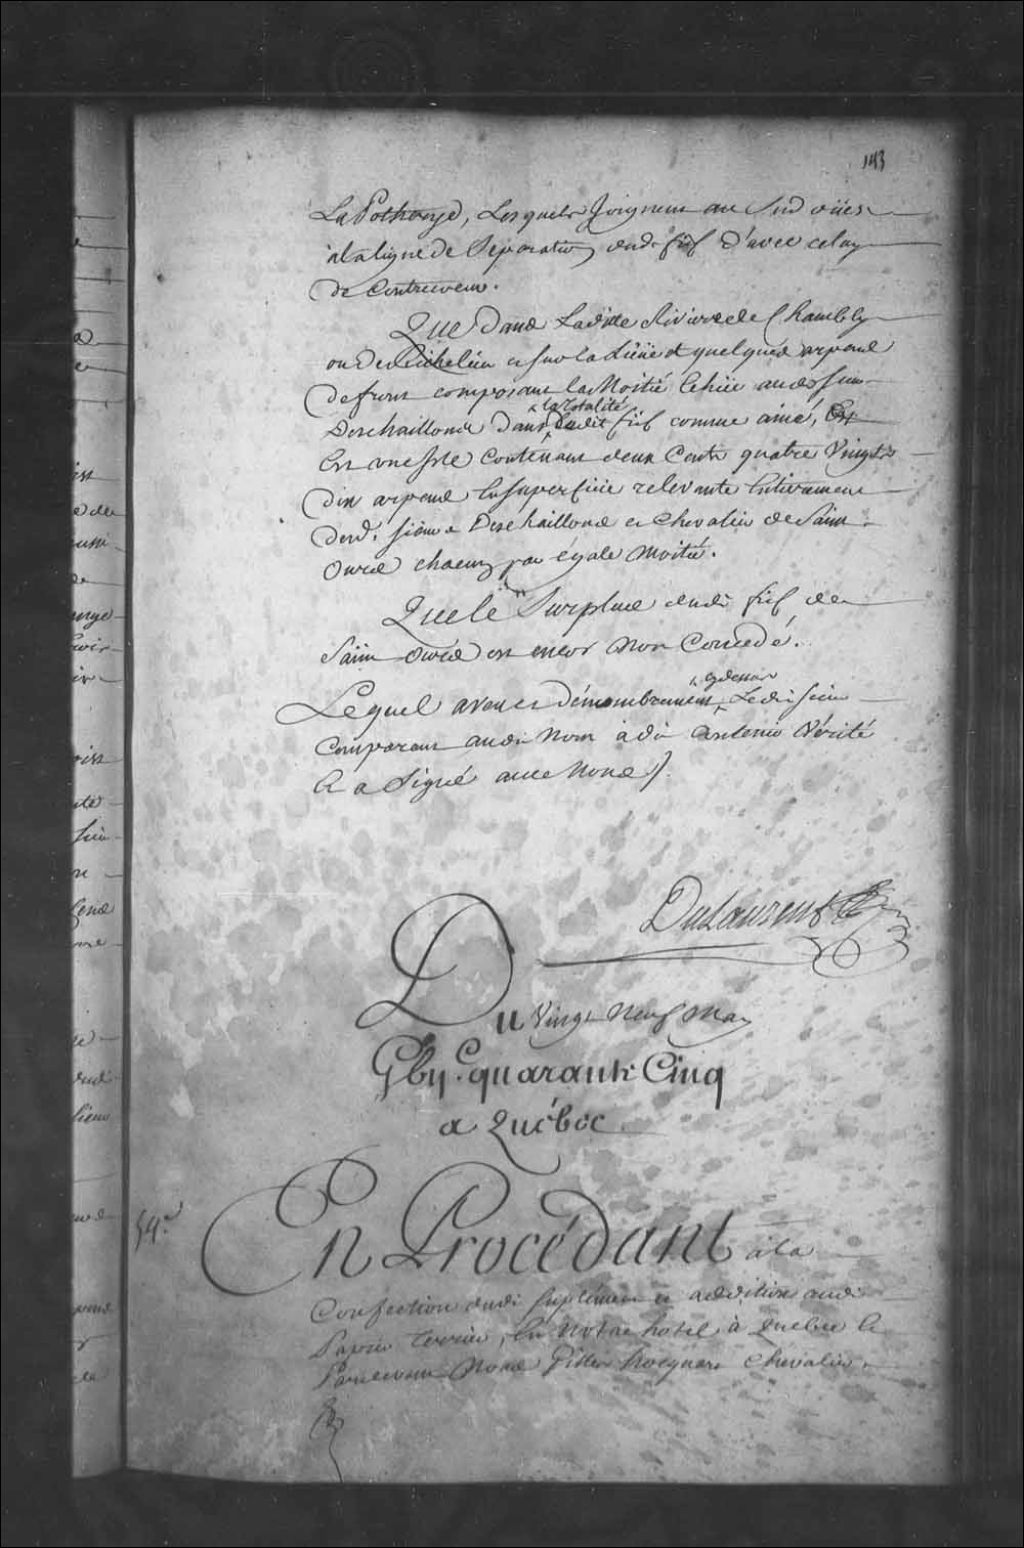 143
La Potherye, Lesquels Joignent au Sud oües
a la ligne de Séparation dud. fief d'avec celuy
De Contrecoeur.
Que dans Ladite Riviere de Chambly
ou de Richelieu et sur la Lieüe et quelques arpens
De front composans la Moitié Echüe aud. S. sieur
Deschaillons dans la totalité dudit fief comme ainé, Est
Est une Isle Contenant deux Cents quatre Vingts
dix arpens En superficie relevante Entierement
desd. sieurs Deschaillons et Chevalier de Saint
Ours chacun par égale Moitié.
Que le Surplus dudit fief de
Saint Ours est encor Non Concédé.
Lequel aveu et dénombrement cy dessus Ledit Sieur
Comparant audit Nom a dit Contenir Vérité
Et a Signé avec Nous /.
DuLaurent
Du Vingt Neuf May
Gbij.c quarante Cinq
a Québec
54.e
En Procédant à la
Confection dudit Suplément et addition audit
Papier Terrier, En Notre hotel à Quebec Et
Pardevant Nous Gilles hocquart Chevalier